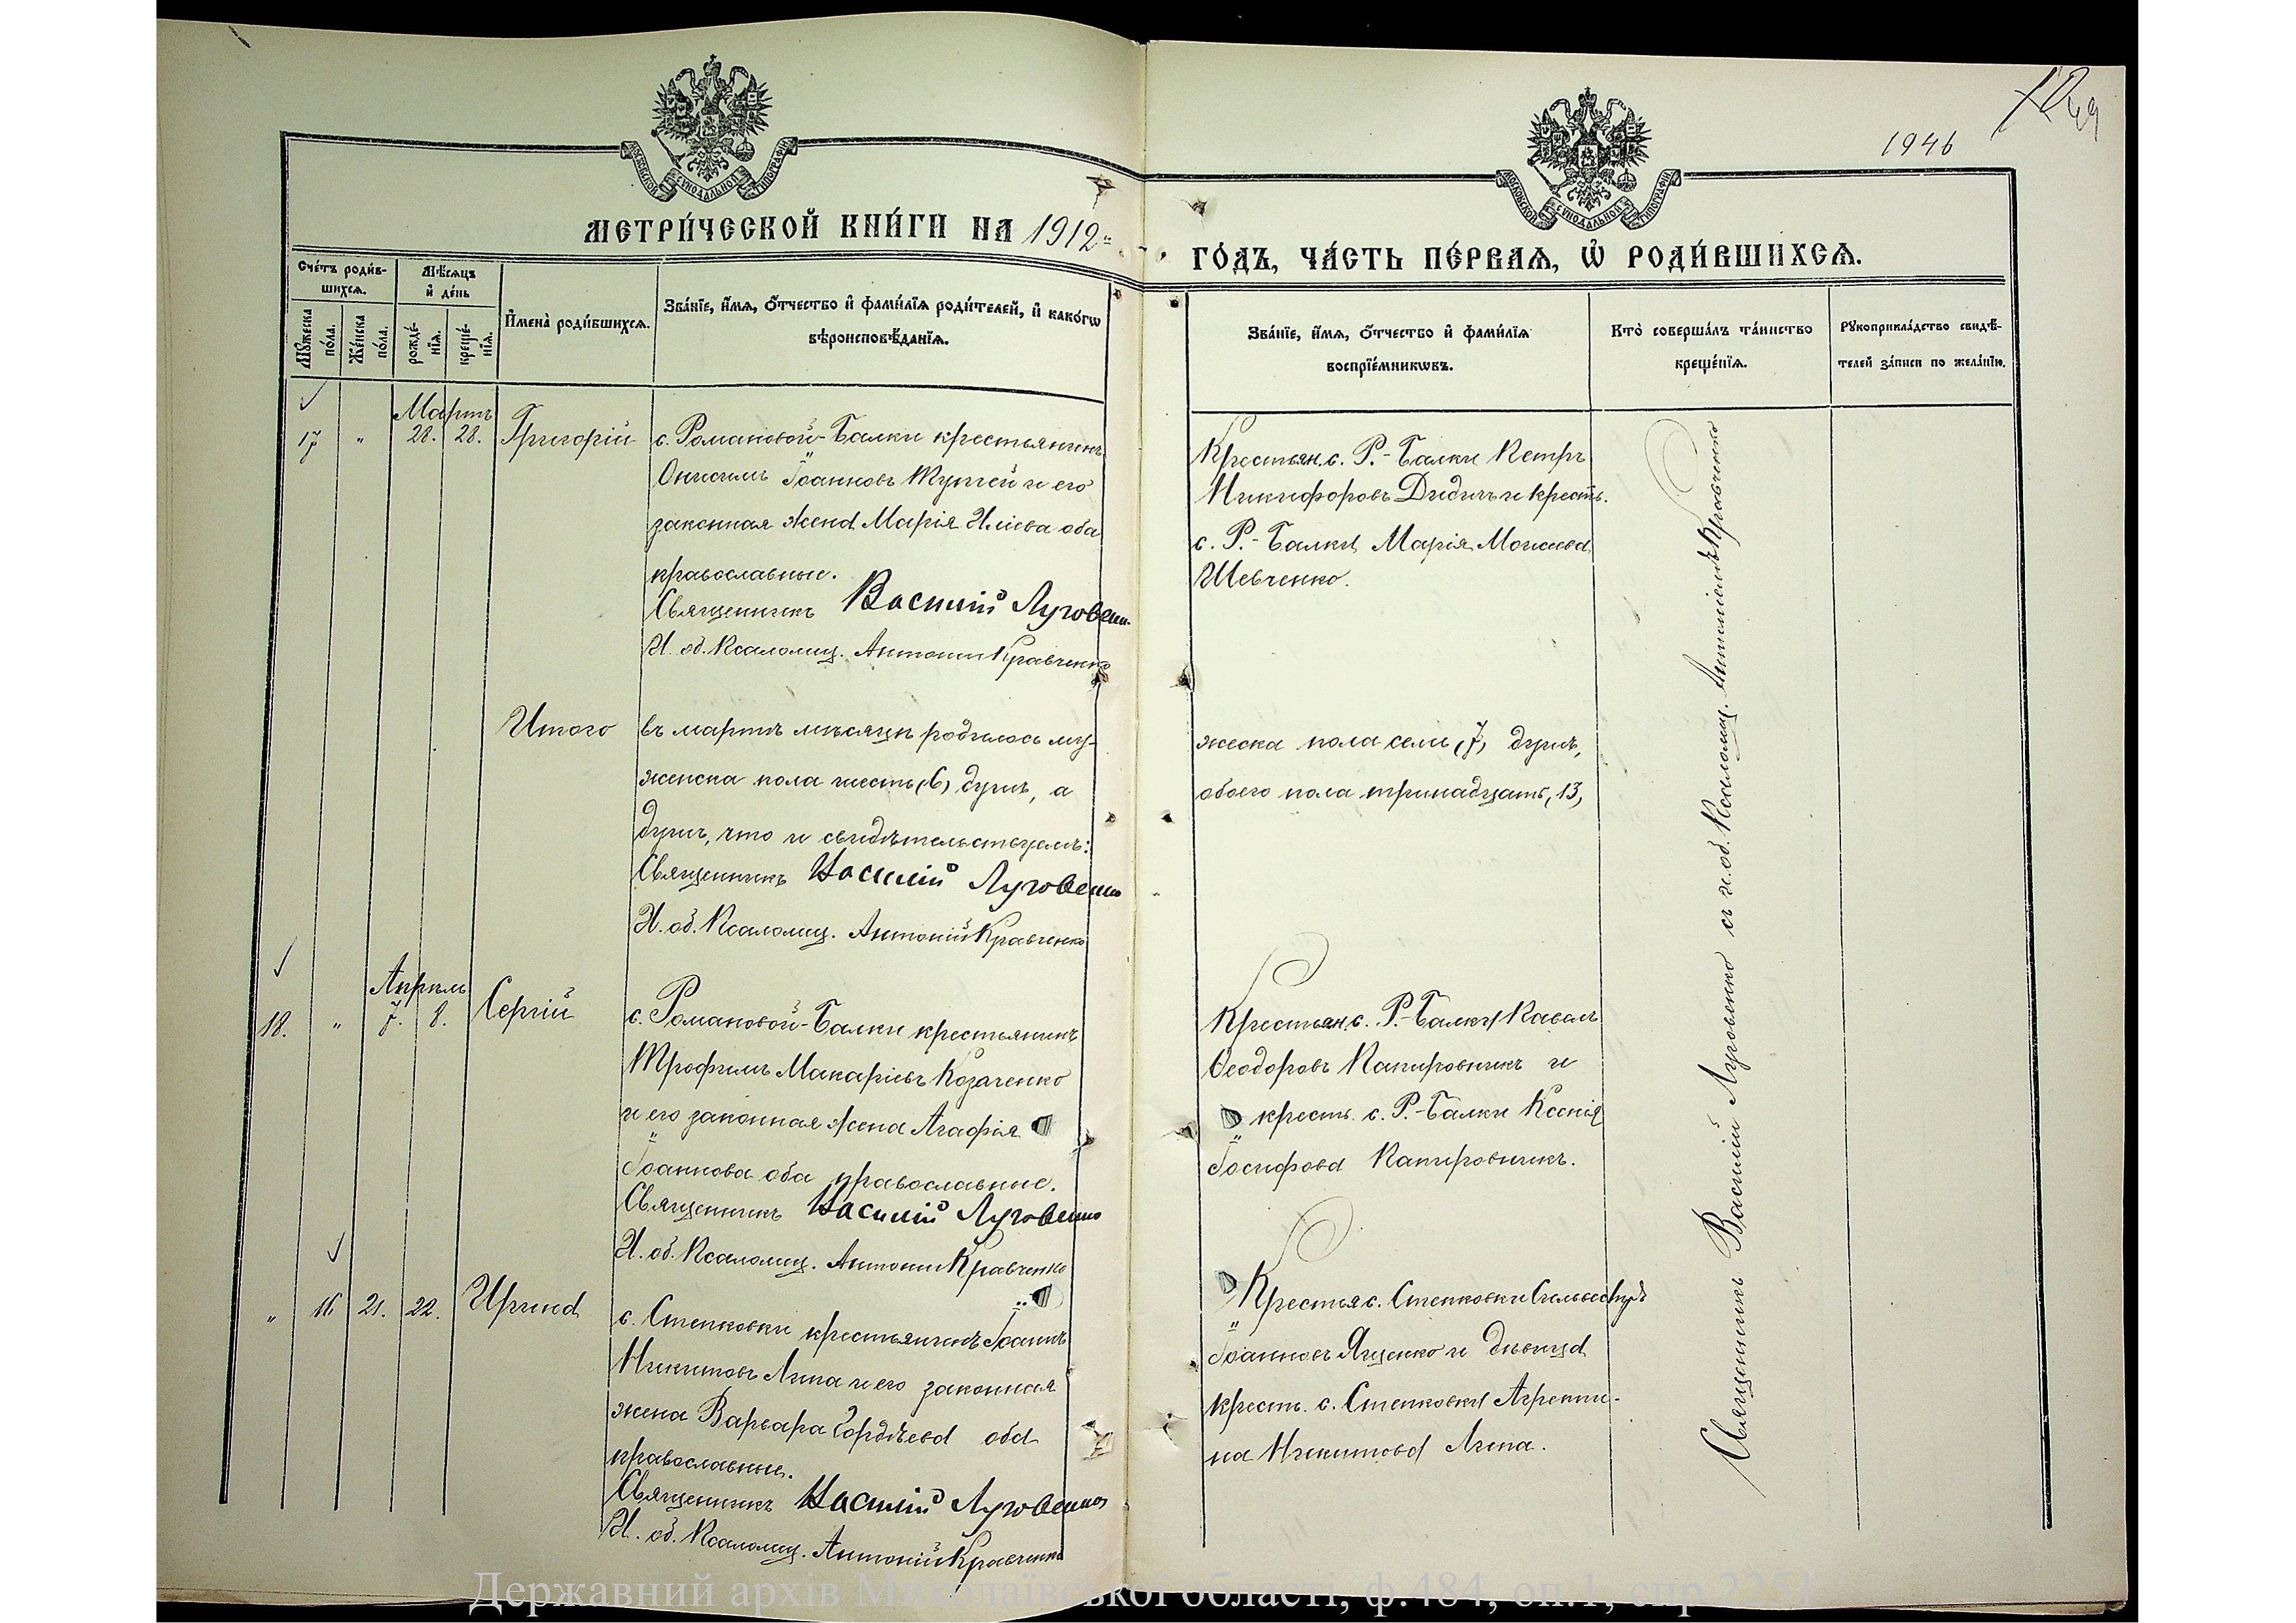 1946
МОСКОВСКОЙ СѴНОДАЛЬНОЙ ТИПОГРАФІИ
МОСКОВСКОЙ СѴНОДАЛЬНОЙ ТИПОГРАФІИ
МЕТРИ́ЧЕСКОЙ КНИ́ГИ НА 1912
ГО́ДЪ, ЧА́СТЬ ПЕ́РВАѦ, Ѡ҆ РОДИ́ВШИХСѦ.
Сче́тъ роди́в-
шихсѧ.
Мѣ́сѧцъ
и҆ де́нь
Мꙋ́жеска
по́ла.
Же́нска
по́ла.
рожде́-
нїѧ.
креще́-
нїѧ.
И҆мена̀ роди́вшихсѧ.
Зва́нїе, и҆́мѧ, ѻ҆́тчество и҆ фами́лїѧ роди́телей, и҆ како́гѡ
вѣроисповѣ́данїѧ.
Зва́нїе, и҆́мѧ, ѻ҆́тчество и҆ фами́лїѧ
воспрїе́мникѡвъ.
Кто̀ соверша́лъ та́инство
креще́нїѧ.
Рꙋкоприкла́дство свидѣ́-
телей за́писи по жела́нїю.
Мартъ
17 " 28. 28. Григорій
с. Романовой-Балки крестьянинъ
Онисимъ Іоанновъ и его
законная жена Марія Иліева оба
православные.
Священникъ Василій Луговенко
И. об. Псаломщ. Антоній Кравченко
Крестьян. с. Р.-Балки Петръ
Никифоровъ Дидичъ и крест.
с. Р.-Балки Марія Моисеева
Шевченко.
Итого въ мартѣ мѣсяцѣ родилось му-
женска пола шесть (6) душъ, а
душъ, что и свидѣтельствуемъ:
Священникъ Василій Луговенко
И. об. Псаломщ. Антоній Кравченко
жеска пола семь (7) душъ,
обоего пола тринадцать (13)
Апрѣль
18. " 7. 8. Сергій
с. Романовой-Балки крестьянинъ
Трофимъ Макаріевъ Козаченко
и его законная жена Агафія
Іоаннова оба православные.
Священникъ Василій Луговенко
И. об. Псаломщ. Антоній Кравченко
Крестьян. с. Р.-Балки Павелъ
Ѳеодоровъ Папировникъ и
крест. с. Р.-Балки Ксенія
Іосифова Папировникъ.
" 16 21. 22. Ирина
с. Степковки крестьянинъ Іоаннъ
Никитовъ Липа и его законная
жена Варвара Гордѣева оба
православные.
Священникъ Василій Луговенко
И. об. Псаломщ. Антоній Кравченко
Крестьян. с. Степковки Сильвестръ
Іоанновъ Яценко и дѣвица
крест. с. Степковки Агрепи-
на Никитова Липа.
Священникъ Василій Луговенко съ и. об. Псаломщ. Антоніемъ Кравченко
Державний архів Миколаївської області, ф.484, оп.1, спр.2251